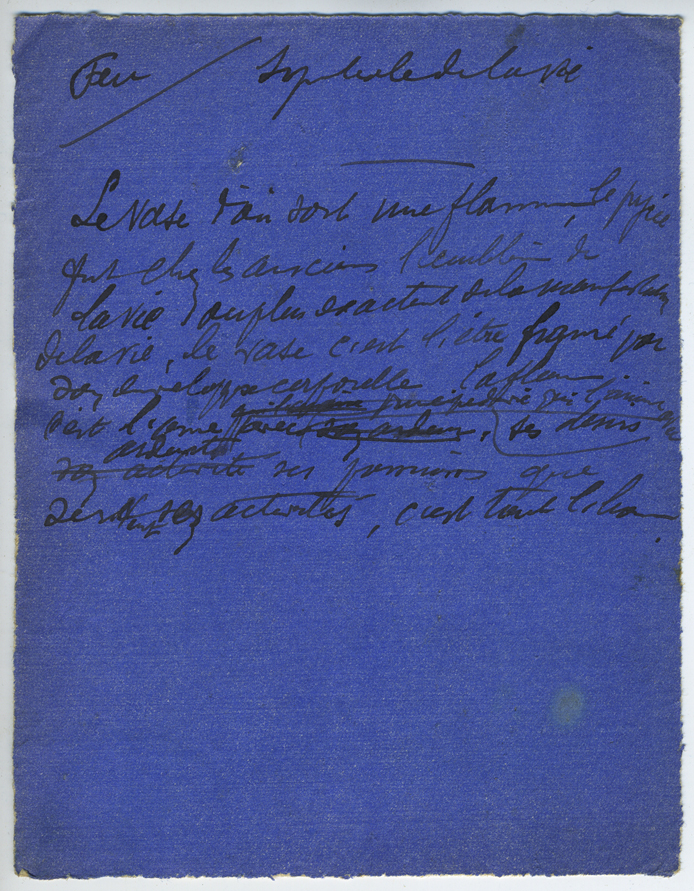 Feu / Symbole de la vie
Le vase d'où sort une flamme, le
fut chez les anciens l'emblème de
la vie ou plus exactement de la manifestation
de la vie, le vase c'est l'être figuré par
son enveloppe corporelle la flamme
c'est l'âme avec son ardeur, ses désirs
ardents
son activité ses passions que
servent ses activités, c'est tout l'homme.